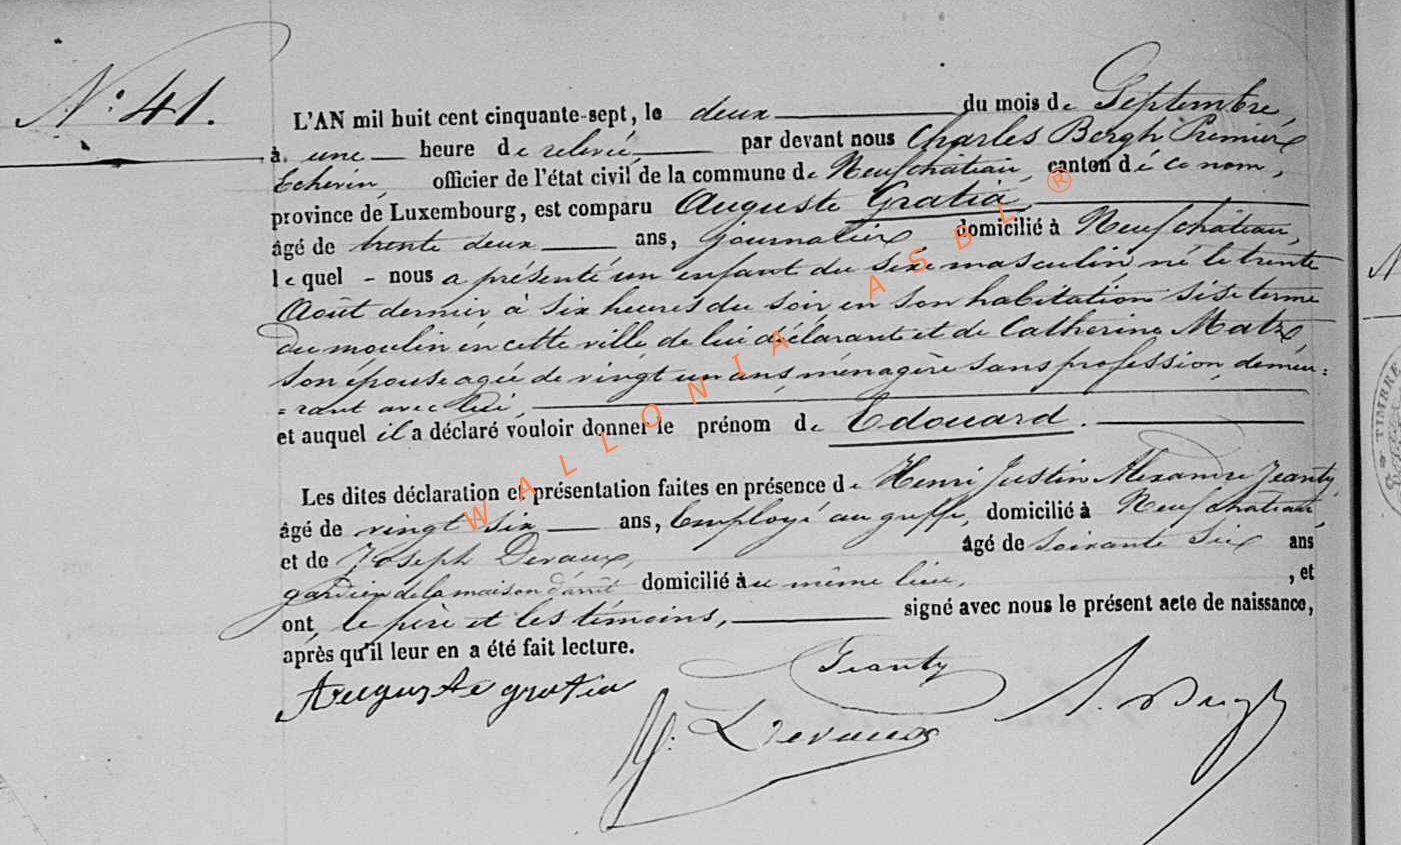 N° 41.
L'AN mil huit cent cinquante-sept, le deux du mois de Septembre,
à une heure de relevée, par devant nous Charles Bergh Premier
Echevin, officier de l'état civil de la commune de Neufchâteau, canton dé ce nom,
province de Luxembourg, est comparu Auguste Gratia,
âgé de trente deux ans, journalier, domicilié à Neufchâteau,
lequel - nous a présenté un enfant du sexe masculin, né le trente
Août dernier à six heures du soir, en son habitation sise terme
du moulin en cette ville de lui déclarant et de Catherine Matz
son épouse agée de vingt un ans, ménagère sans profession, demeu=
=rant avec lui,
et auquel il a déclaré vouloir donner le prénom de Edouard.
Les dites déclaration et présentation faites en présence de Henri Justin Alexandre Jeanty,
âgé de vingt six ans, Employé au greffe, domicilié à Neufchâteau,
et de Joseph Devaux, âgé de soixante six ans
gardien de la maison d'arrêt domicilié au même lieu, , et
ont, le père et les témoins, signé avec nous le présent acte de naissance,
après qu'il leur en a été fait lecture.
Auguste gratia
Jeanty
J. Devaux
WALLONIA ASBL ®
TIMBRE